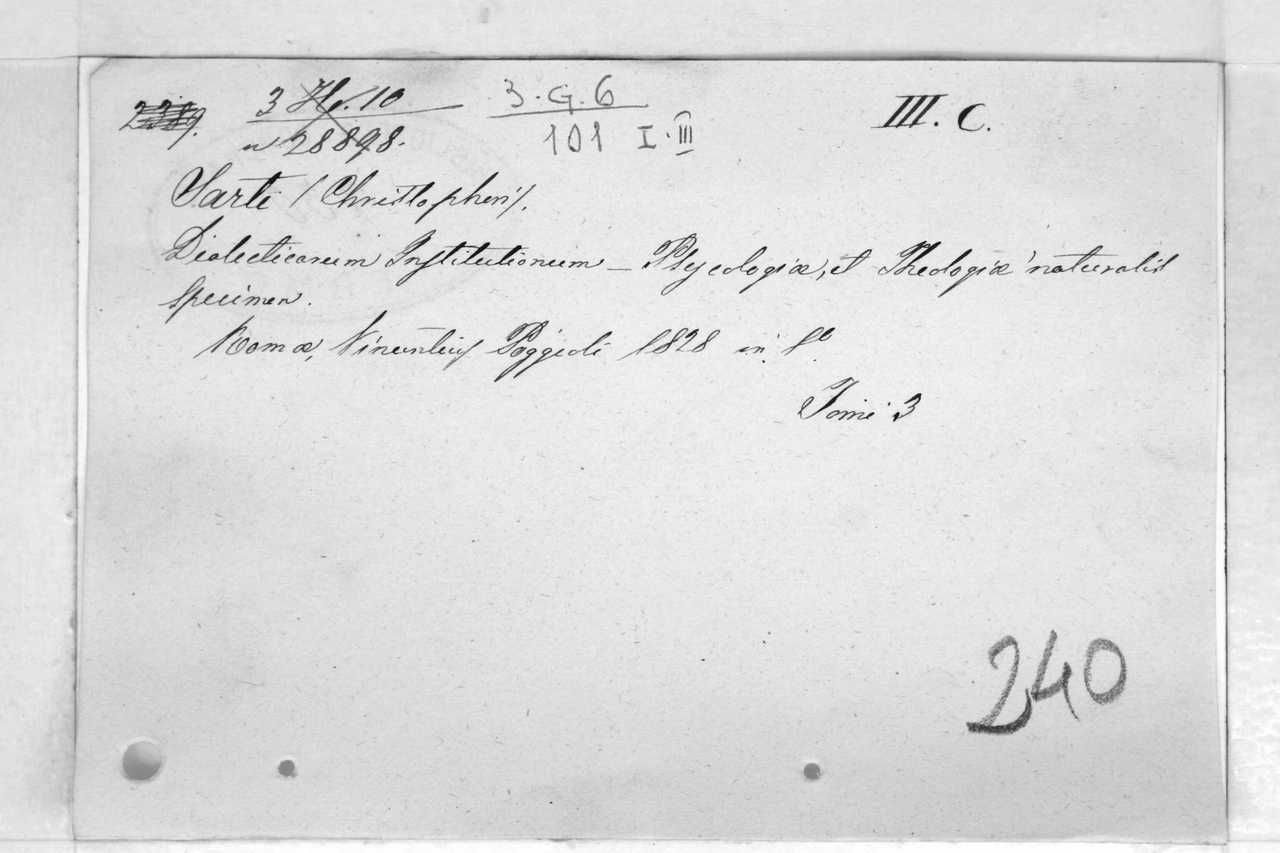 2389. 3 H. 10 3.G.6 III. C.
n 28898. 101 I.III
Sarti (Christophori).
Dialecticarum Institutionum – Psycologiæ, et Theologiæ naturalis
specimen.
Romæ, Vincentius Poggioli 1828 in 8º
Tomi 3
240